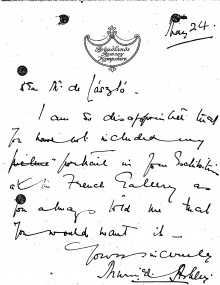 May 24.
Broadlands
Romsey
Hampshire
Dear Mr de László.
I am so disappointed that
you have not included my
picture portrait in your Exhibition
at the French Gallery as
you always told me that
you would want it —
Yours sincerely
Ashley